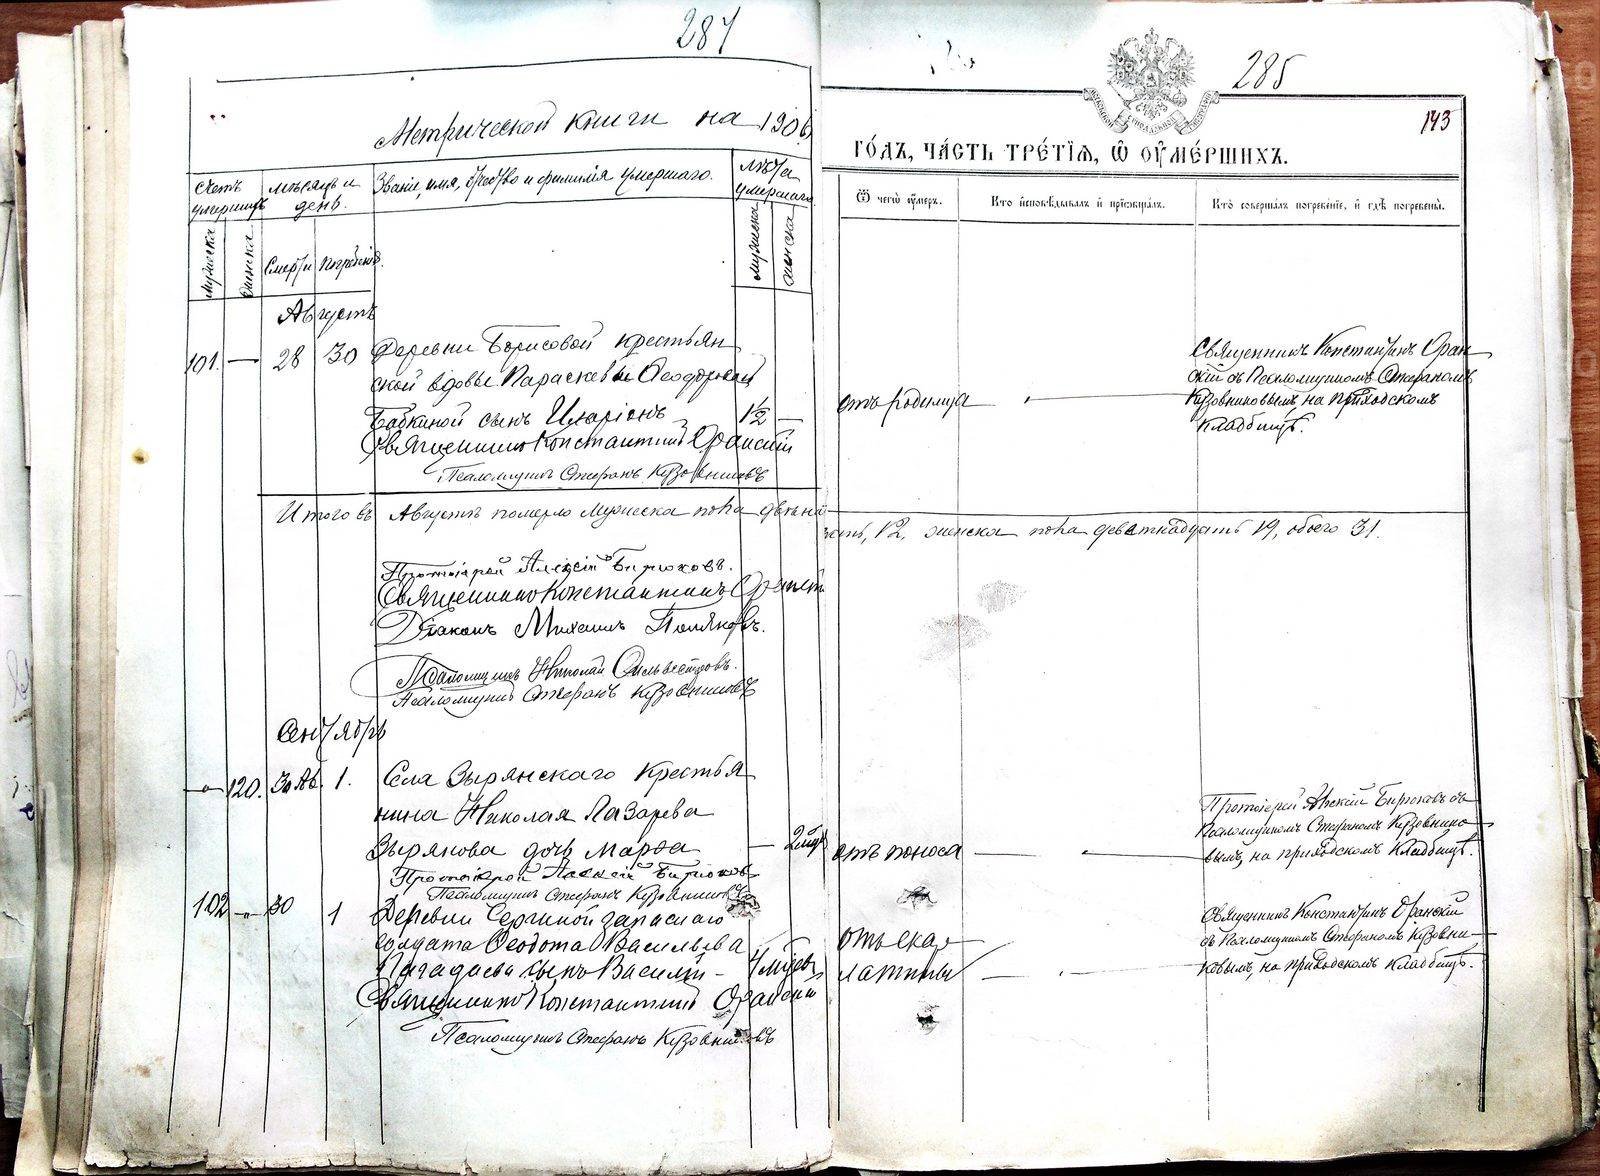 284
285
143
Метрической книги на 1906
ГО́ДЪ, ЧА́СТЬ ТРЕ́ТІѦ, Ѿ ОУ҆МЕ́РШИХЪ.
Счетъ умершихъ
Мѣсяцъ и день.
Званіе, имя, отчество и фамилія умершаго.
Лѣта умершаго
Мужеска
Женска
Смерти
Погребенія.
Мужеска
Женска
Ѿ чегѡ̀ ᲂу҆́меръ.
Кто̀ и҆сповѣ́дывалъ и҆ прїѡбща́лъ.
Кто̀ соверша́лъ погребе́нїе, и҆ гдѣ̀ погребены̀.
Августъ
101. — 28 30 Деревни Борисовой крестьян
ской вдовы Параскевы Ѳеодоровой
Бабкиной сынъ Иларіонъ — 1½ —
Священникъ Константинъ Оранскій
Псаломщикъ Стефанъ Кузовниковъ
отъ родимца
Священникъ Константинъ Оран
скій съ Псаломщикомъ Стефаномъ
Кузовниковымъ на приходскомъ
кладбищѣ.
Итого въ Августѣ померло мужеска пола двѣна
дцать, 12, женска пола девятнадцать 19, обоего 31.
Протоіерей Алексій Бирюковъ.
Священникъ Константинъ Оранскій
Діаконъ Михаилъ Поляковъ.
Псаломщикъ Николай Сильвестровъ.
Псаломщикъ Стефанъ Кузовниковъ
Сентябрь
— 120. 30 Ав. 1. Села Зырянскаго крестья
нина Николая Лазарева
Зырянова дочь Марѳа — 2
Протоіерей Алексій Бирюковъ
Псаломщикъ Стефанъ Кузовниковъ
отъ поноса
Протоіерей Алексій Бирюковъ съ
Псаломщикомъ Стефаномъ Кузовнико
вымъ, на приходскомъ кладбищѣ.
102 — 30 1 Деревни запаснаго
солдата Ѳеодота Васильева
сынъ Василій — 4
Священникъ Константинъ Оранскій
Псаломщикъ Стефанъ Кузовниковъ
отъ ска
латины
Священникъ Константинъ Оранскій
съ Псаломщикомъ Стефаномъ Кузовни
ковымъ, на приходскомъ кладбищѣ.